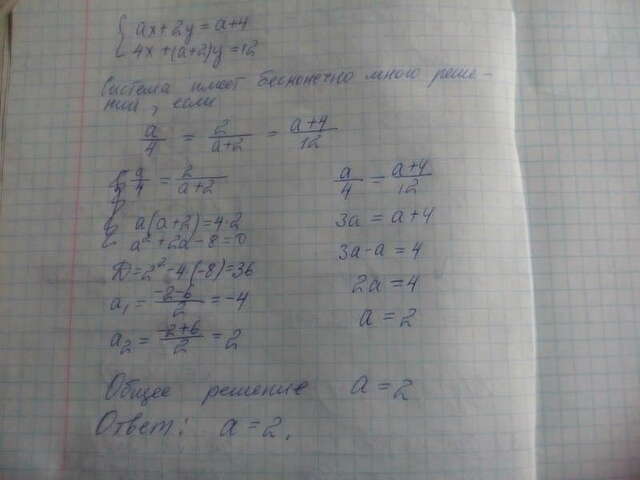 { ax+2y=a+4
4x+(a+2)y=12
Система имеет бесконечно много реше-
ний, если
a/4 = 2/(a+2) = (a+4)/12
a/4 = 2/(a+2)
a(a+2)=4·2
a²+2a-8=0
D=2²-4·(-8)=36
a₁ = (-2-6)/2 = -4
a₂ = (-2+6)/2 = 2
a/4 = (a+4)/12
3a = a+4
3a-a = 4
2a = 4
a = 2
Общее решение a = 2
Ответ: a = 2.